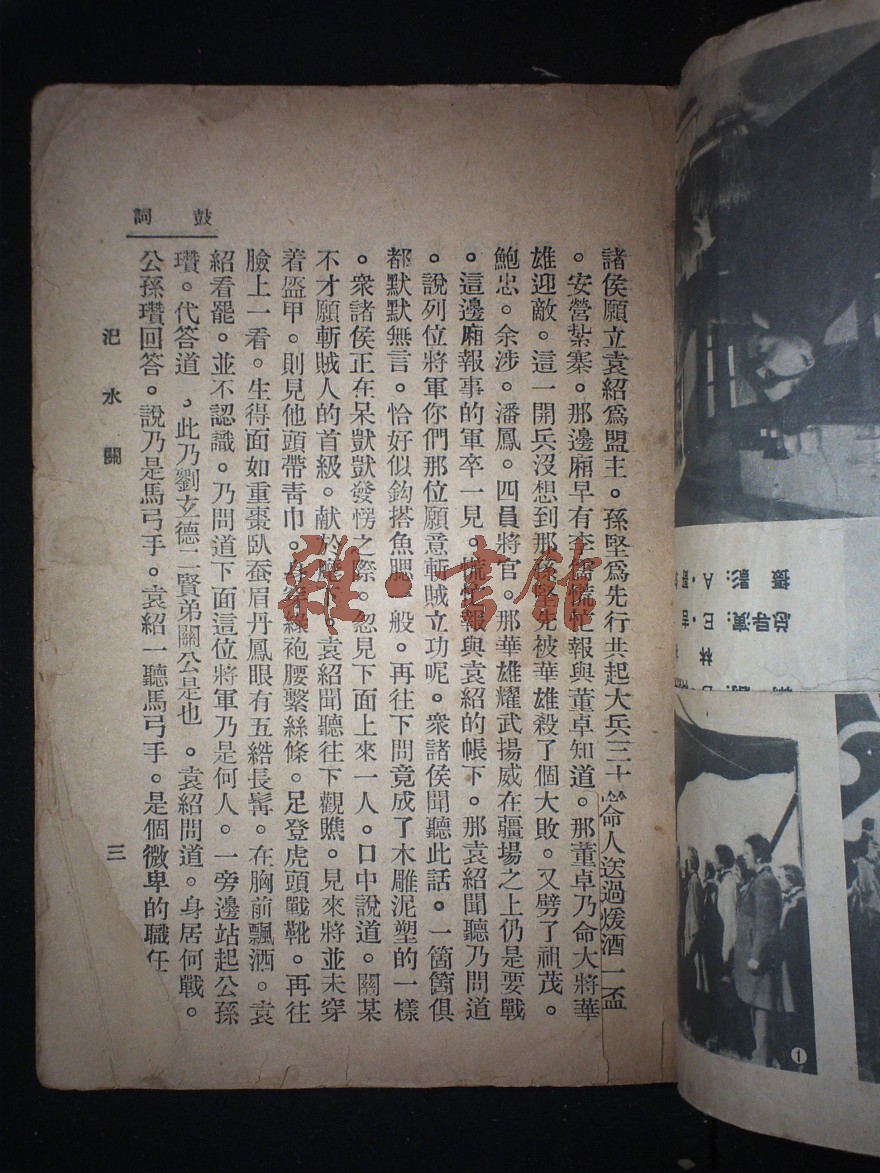 諸侯願立袁紹爲盟主。孫堅爲先行共起大兵三十
命人送過煖酒一盃
。安營紮寨。那邊廂早有李儒慌忙報與董卓知道。那董卓乃命大將華
雄迎敵。這一開兵沒想到那孫堅先被華雄殺了個大敗。又劈了祖茂。
鮑忠。余涉。潘鳳。四員將官。那華雄耀武揚威在疆場之上仍是要戰
。這邊廂報事的軍卒一見。慌忙報與袁紹的帳下。那袁紹聞聽乃問道
。說列位將軍你們那位願意斬賊立功呢。衆諸侯聞聽此話。一箇箇俱
都默默無言。恰好似鈎搭魚腮一般。再往下問竟成了木雕泥塑的一樣
。衆諸侯正在呆獃獃發愣之際。忽見下面上來一人。口中說道。關某
不才願斬賊人的首級。献於麾下。袁紹聞聽往下觀瞧。見來將並未穿
着盔甲。則見他頭帶青巾。身穿綠袍腰繫絲條。足登虎頭戰靴。再往
臉上一看。生得面如重棗臥蚕眉丹鳳眼有五綹長髯。在胸前飄洒。袁
紹看罷。並不認識。乃問道下面這位將軍乃是何人。一旁邊站起公孫
瓚。代答道。此乃劉玄德二賢弟關公是也。袁紹問道。身居何戰。
公孫瓚回答。說乃是馬弓手。袁紹一聽馬弓手。是個微卑的職任
鼓詞
汜水關
三
雜·書館
摄影：A·
总导演：E·吉
林
1